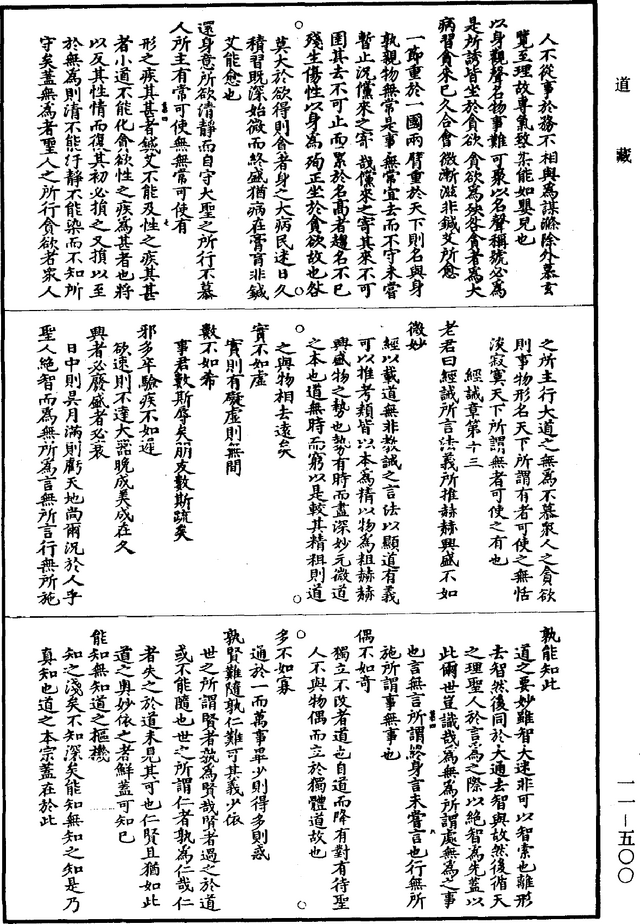 道藏
人不從事於務不相與為謀滌除外慕玄
覽至理故專氣致柔能如嬰兒也
以身觀聲名物事難可聚以名聲稱號必為
是所誘皆坐於貪欲貪欲為殃咎貪者為大
病習貪來已久合會微漸滋非鍼艾所愈
一節重於一國兩臂重於天下則名與身
孰親物無常是事無常宜去而不守未嘗
暫止況儻來之寄哉儻來之寄其來不可
圉其去不可止而累於名高者趨名不已
殘生傷性以身為殉正坐於貪欲故也咎
莫大於欲得則貪者身之大病民迷日久
積習既深始微而終盛猶病在膏肓非鍼
艾能愈也
還身意所欲清靜而自守大聖之所行不慕
人所主有常可使無無常可使有
形之疾其甚者鍼艾不能及性之疾其甚
者小道不能化貪欲性之疾為甚者也將
以反其性情而復其初必損之又損以至
於無為則清不能汙靜不能染而不知所
守矣蓋無為者聖人之所行貪欲者衆人
之所主行大道之無為不慕衆人之貪欲
則事物形名天下所謂有者可使之無恬
淡寂寞天下所謂無者可使之有也
經誡章第十三
老君曰經誡所言法義所推赫赫興盛不如
微妙
經以載道無非教誡之言法以顯道有義
可以推考類皆以本為精以物為粗赫赫
興盛物之勢也勢有時而盡深妙元微道
之本也道無時而窮以是較其精粗則道
之與物相去遠矣
實不如虛
實則有礙虛則無間
數不如希
事君數斯辱矣朋友數斯疏矣
邪多卒驗疾不如遲
欲速則不達大器晚成美成在久
興者必廢盛者必衰
日中則昃月滿則虧天地尚爾況於人乎
聖人絕智而為無所為言無所言行無所施
孰能知此
道之要妙雖智大迷非可以智索也離形
去智然後同於大通去智與故然後循天
之理聖人於言為之際以絕智為先蓋以
此爾世豈識哉為無為所謂處無為之事
也言無言所謂終身言未嘗言也行無所
施所謂事無事也
偶不如奇
獨立不改者道也自道而降有對有待聖
人不與物偶而立於獨體道故也
多不如寡
通於一而萬事畢少則得多則惑
孰賢難隨孰仁難可其義少依
世之所謂賢者孰為賢哉賢者過之於道
或不能隨也世之所謂仁者孰為仁哉仁
者失之於道未見其可也仁賢且猶如此
道之奧妙依之者鮮蓋可知已
能知無知道之樞機
知之淺矣不知深矣能知無知之知是乃
真知也道之本宗蓋在於此
一一—五〇〇